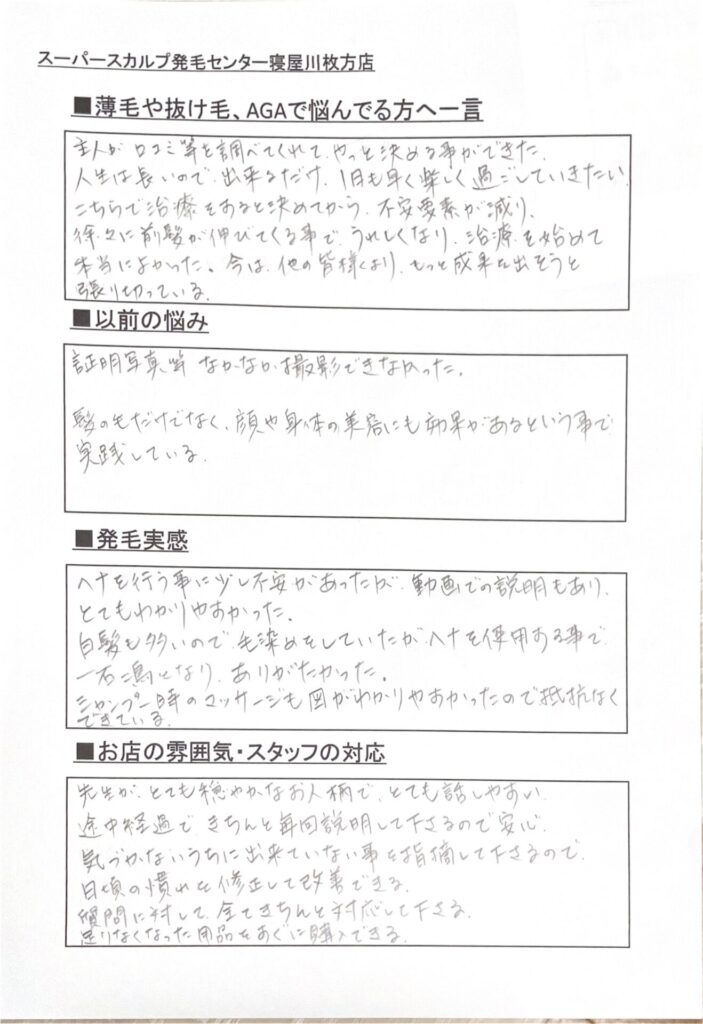 スーパースカルプ発毛センター寝屋川枚方店
■薄毛や抜け毛、AGAで悩んでる方へ一言
主人が口コミ等を調べてくれて、やっと決める事ができた。
人生は長いので、出来るだけ、1日も早く楽しく過ごしていきたい。
こちらで治療をすると決めてから、不安要素が減り、
徐々に前髪が伸びてくる事で、うれしくなり、治療を始めて
本当によかった。今は、他の皆様より、もっと成果を出そうと
張り切っている。
■以前の悩み
証明写真等 なかなか撮影できなかった。
髪の毛だけでなく、顔や身体の美容にも効果があるという事で
実践している。
■発毛実感
ヘナを行う事に少し不安があったが、動画での説明もあり、
とてもわかりやすかった。
白髪も多いので、毛染めをしていたが、ヘナを使用する事で
一石二鳥となり、ありがたかった。
シャンプー時のマッサージも図がわかりやすかったので抵抗なく
できている。
■お店の雰囲気・スタッフの対応
先生が、とても穏やかなお人柄で、とても話しやすい。
途中経過で、きちんと毎回説明して下さるので安心。
気づかないうちに出来ていない事を指摘して下さるので、
日頃の慣れを修正して改善できる。
質問に対して、全てきちんと対応して下さる。
足りなくなった用品をすぐに購入できる。